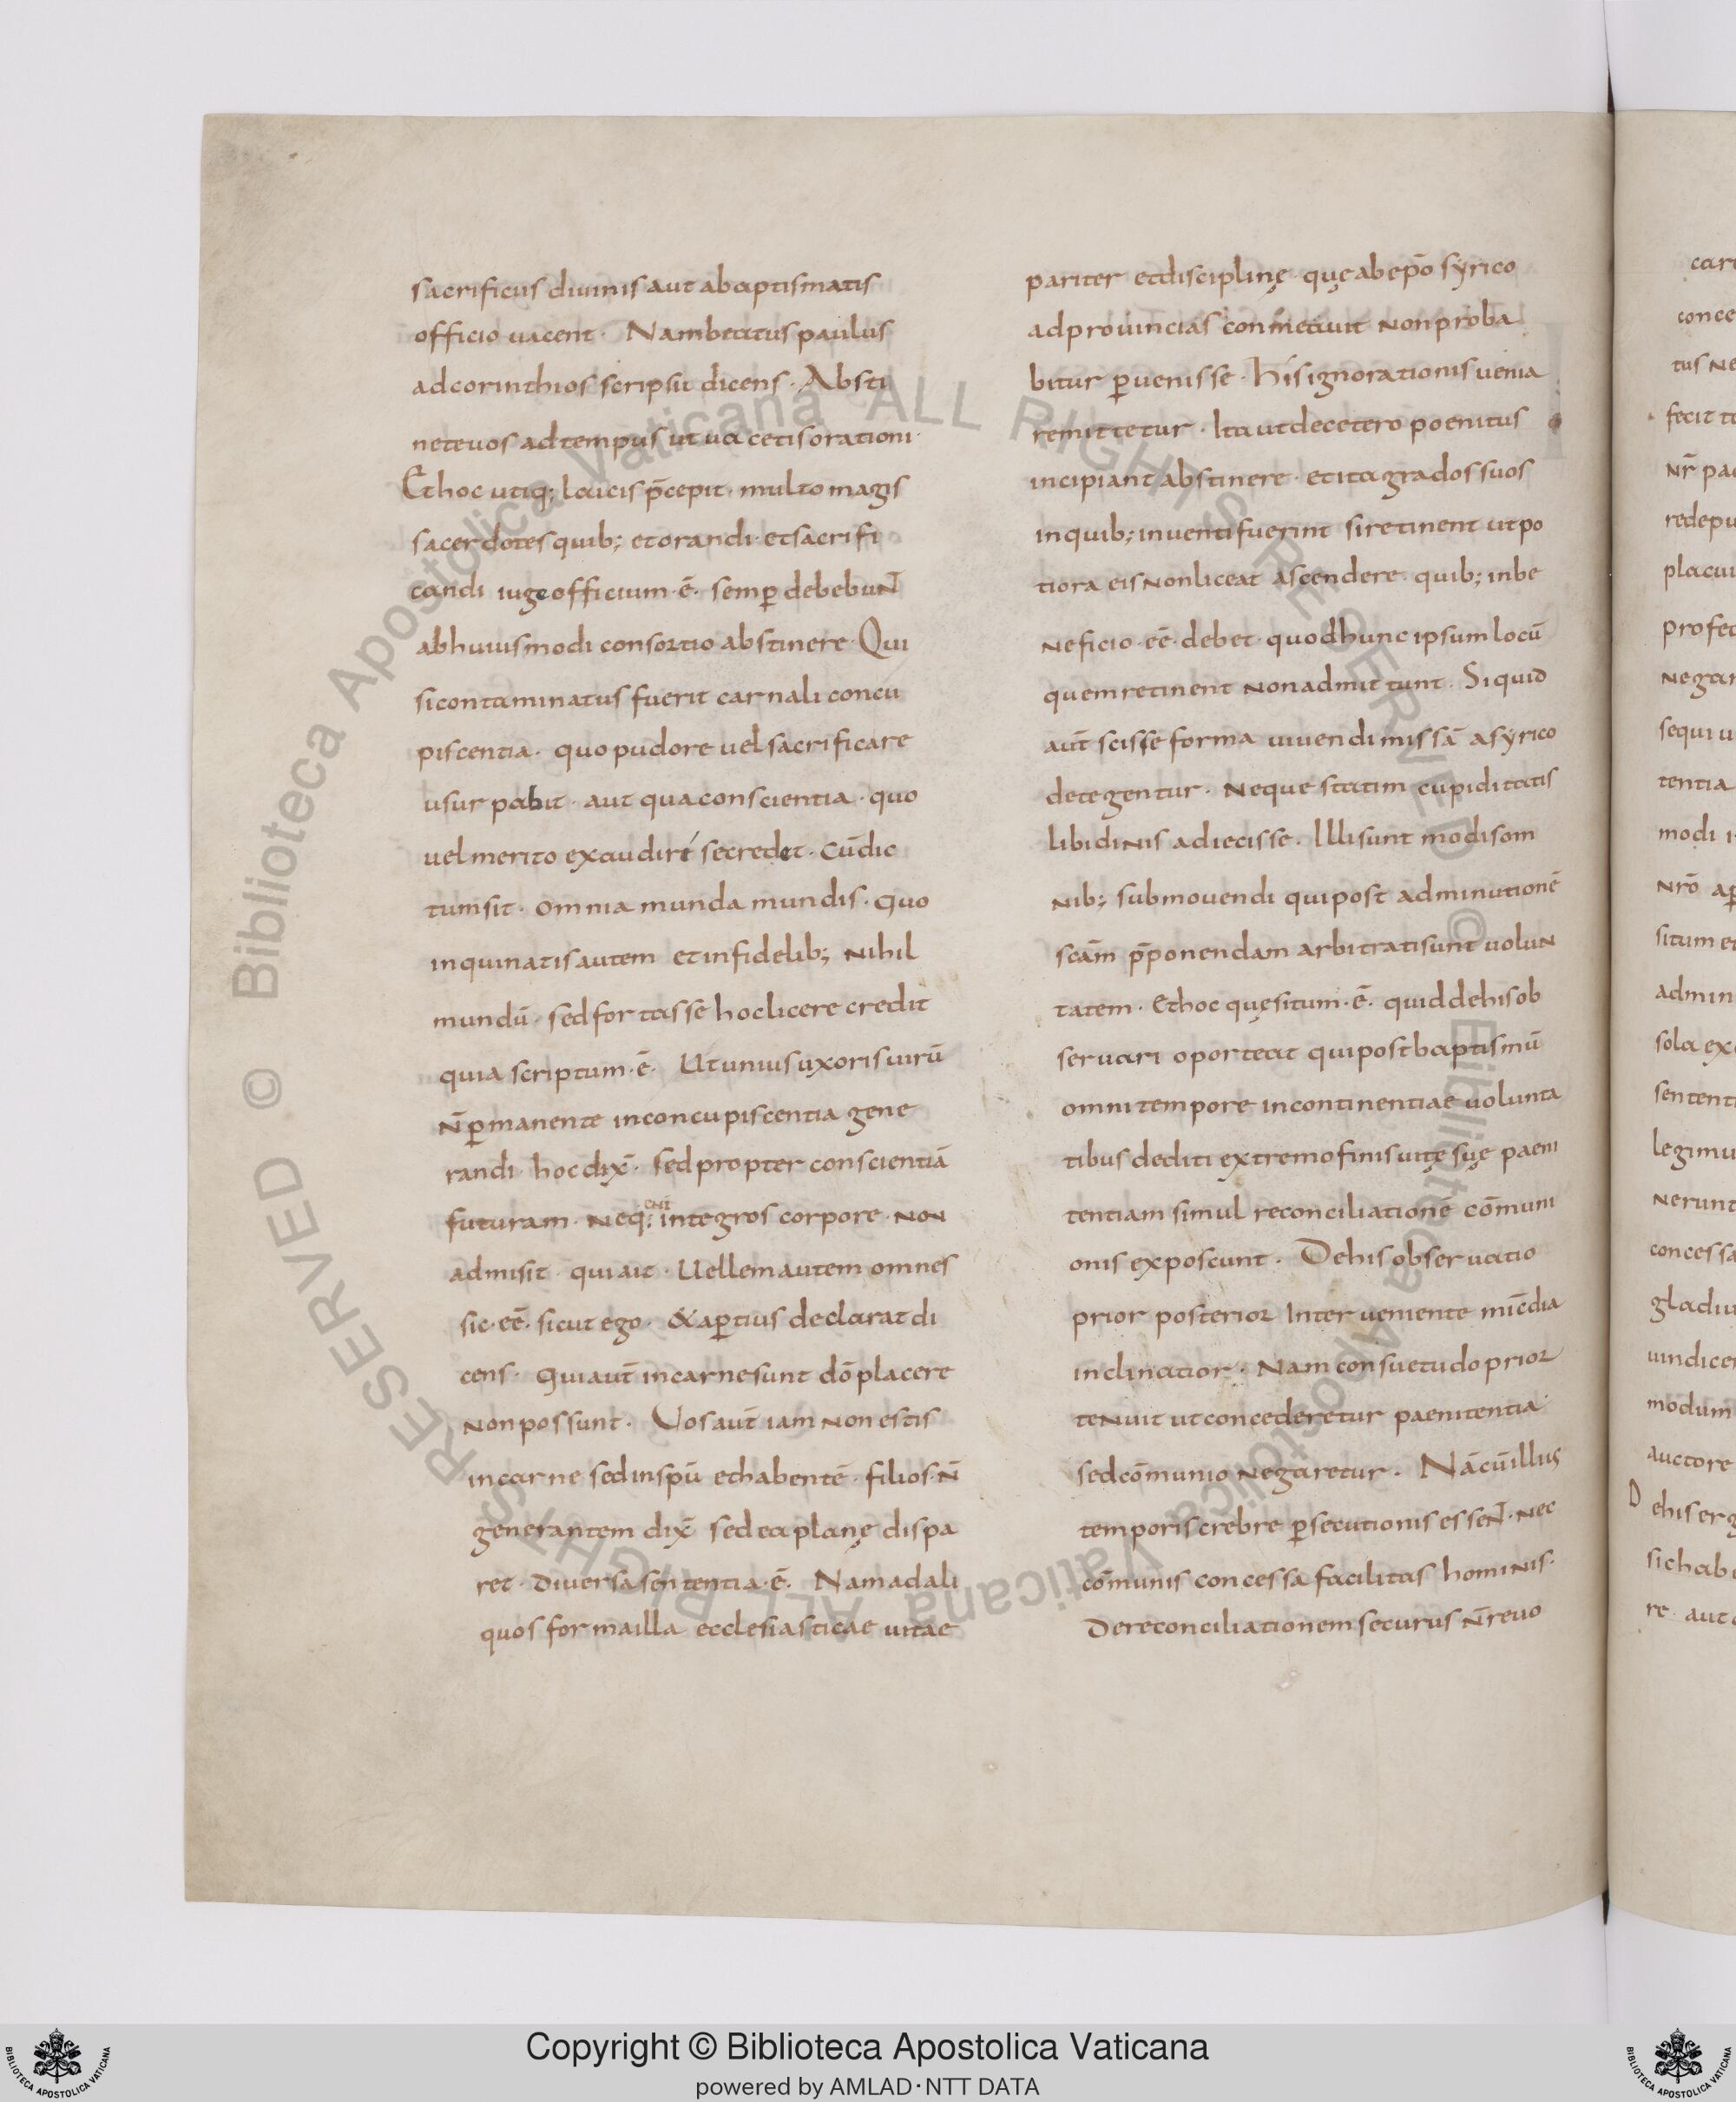 sacrificiis diuinis aut abaptismatis
officio uacent · Nam beatus paulus
ad corinthios scripsit dicens · Absti
nete uos ad tempus ut uacetis orationi ·
Et hoc utiq; laicis p̄cepit · multo magis
sacerdotes quib; et orandi · et sacrifi
candi iuge officium · ē · semꝑ debebuNT
ab huiusmodi consortio abstinere · Qui
si contaminatus fuerit carnali concu
piscentia · quo pudore uel sacrificare
usurpabit · aut qua conscientia · quo
uel merito exaudiré se credet · Cū dic
tum sit · omnia munda mundis · Quo
inquinatis autem et infidelib; Nihil
mundū · sed fortasse hoc licere credit
quia scriptum · ē · Ut unius uxoris uirū
N̄ ꝑmanente in concupiscentia gene
randi · hoc dix̄ · sed propter conscientiā
futuram · Neq; eni integros corpore · NoN
admisit · qui ait · Uellem autem omnes
sic · eē · sicut ego · & aꝑtius declarat di
cens · Qui aut̄ in carne sunt dō placere
Non possunt · Vos aut̄ iam Non estis
in carne sed in spū et habentē · filios · N̄
generantem dix̄ sed ea planę dispa
ret · Diuersa sententia · ē · Nam ad ali
quos forma illa ecclesiasticae uitae
pariter et disciplinę · quę ab ep̄o syrico
ad prouincias conmeauit Non proba
bitur ꝑuenisse · His ignorationis uenia
remittetur · Ita ut de cetero poenitus
incipiant abstinere · et ita grados suos
in quib; inuenti fuerint si retinent ut po
tiora eis Non liceat ascendere · quib; in be
Neficio · eē · debet · quod hunc ipsum locū
quem retinent Non admittunt · Si quid
aut̄ scisse forma uiuendi missā a syrico
detegentur · Neque statim cupiditatis
libidiNis adiecisse · Illi sunt modis om
Nib; submouendi qui post adminutionē
scām p̄ponendam arbitrati sunt uoluN
tatem · Et hoc quęsitum · ē · quid de his ob
seruari oporteat qui post baptismū
omni tempore incontinentiae uolunta
tibus dediti extremo finis uitę suę paeni
tentiam simul reconciliationē cōmuni
onis exposcunt · De his obseruatio
prior posterior Interueniente mic̄dia
inclinatior · Nam consuetudo prior
teNuit ut concederetur paenitentia
sed cōmunio Negaretur · Nā cū illius
temporis crebre ꝑsecutionis esseNT · Nec
cōmunis concessa facilitas homiNis ·
De reconciliationem securus N̄ reuo
cari
conce
tus Ne
fecit te
Nr̄ pa
redepu
placui
profec
Negar
sequi u
tentia
modi i
Nrō aꝑ
situm e
admin
sola ex
sentent
legimu
Nerunt
concessa
gladiu
uindice
modum
auctore
De his erg
sic habe
re · aut
Copyright © Biblioteca Apostolica Vaticana
powered by AMLAD·NTT DATA